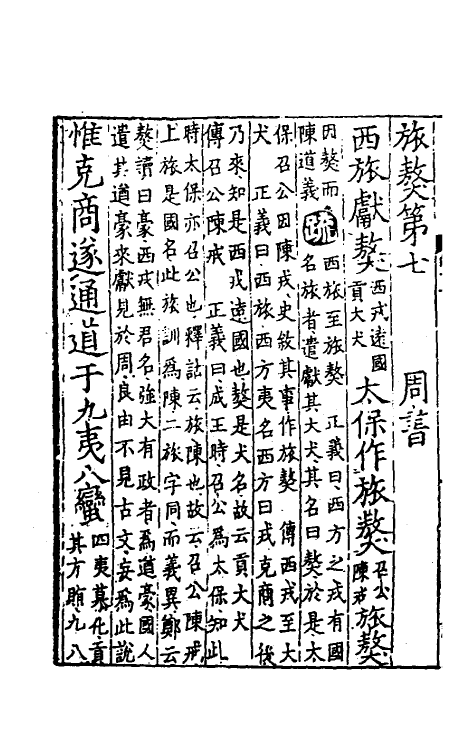 旅獒第七　周書
西旅獻獒西戎遠國貢大犬太保作旅獒召公陳戒旅獒
因獒而陳道義疏西旅至旅獒　正義曰西方之戎有國名旅者遣獻其大犬其名曰獒於是太
保召公因陳戎史敘其事作旅獒　傳西戎至大犬　正義曰西旅西方夷名西方曰戎克商之後
乃來知是西戎遠國也獒是犬名故云貢大犬　傳召公陳戒　正義曰成王時召公爲太保知此
時太保亦召公也釋詁云旅陳也故云召公陳戒上旅是國名此旅訓爲陳二旅字同而義異鄭云
獒讀曰豪西戎無君名強大有政者爲遒豪國人遣其遒豪來獻見於周良由不見古文妄爲此說
惟克商遂通道于九夷八蠻四夷慕化貢其方賄九八